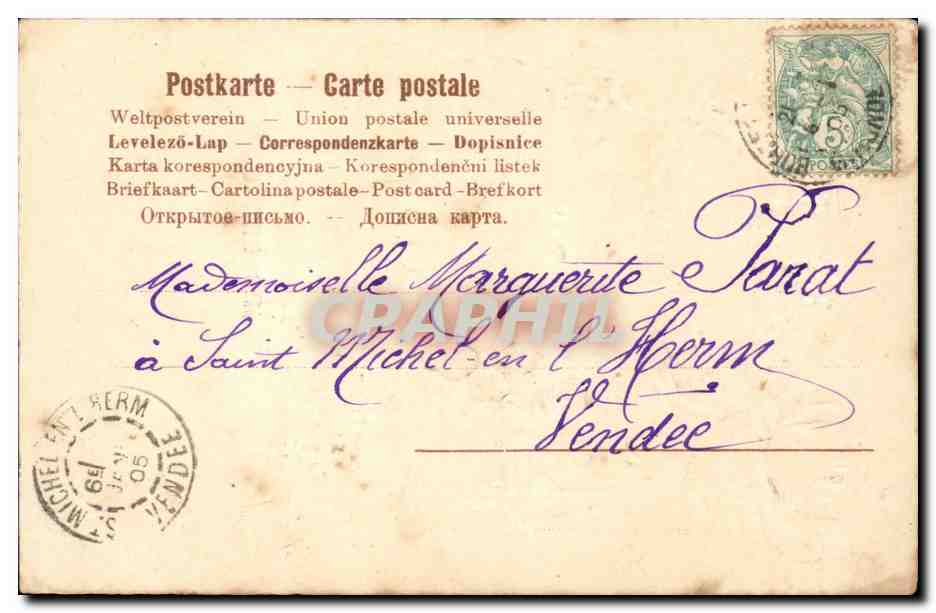 Postkarte — Carte postale
Weltpostverein — Union postale universelle
Levelező-Lap — Correspondenzkarte — Dopisnice
Karta korespondencyjna — Korespondenčni listek
Briefkaart — Cartolina postale — Post card — Brefkort
Открытое-письмо. — Дописна карта.
Mademoiselle Marguerite Parat
CPAPHIL
à Saint Michel-en l'Herm
Vendée
ST MICHEL EN L'HERM
JANV
05
VENDEE